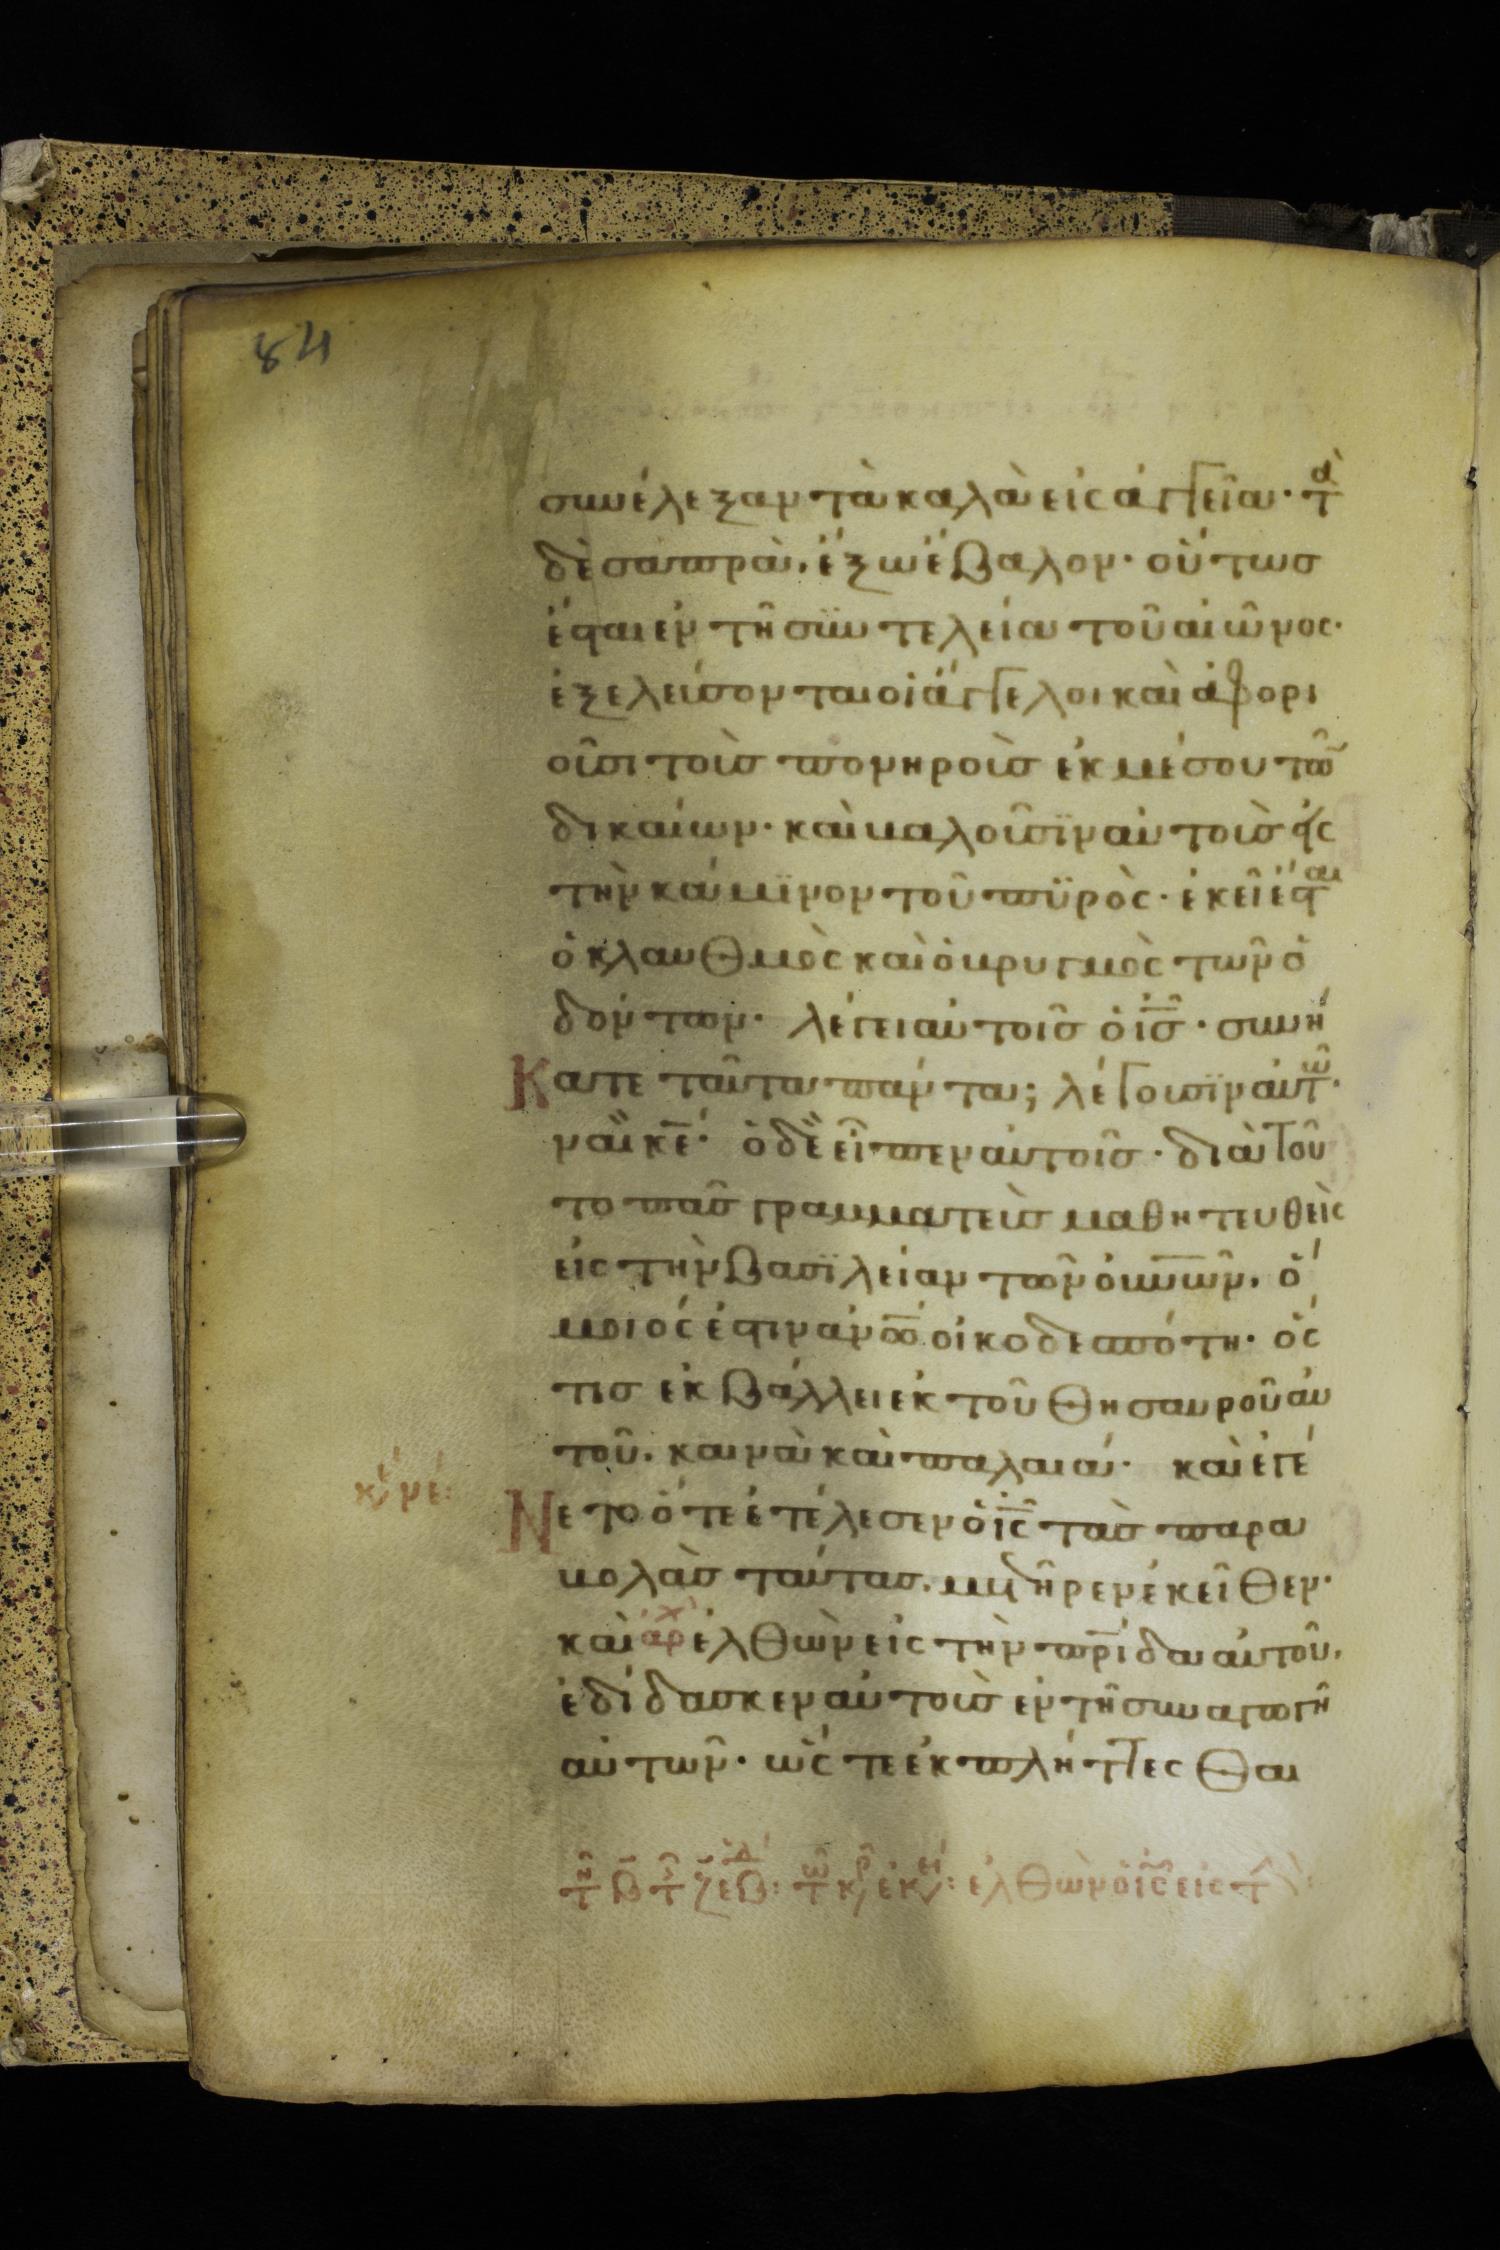 84
συνέλεξαν τὰ καλὰ εἰς ἀγγεῖα· τὰ
δὲ σαπρὰ, ἔξω ἔβαλον· οὕτως
ἔσται ἐν τῆ συντελεία τοῦ αἰῶνος·
ἐξελεύσονται οἱ ἄγγελοι καὶ ἀφορι
οῦσι τοὺς πονηροὺς ἐκ μέσου τῶν
δικαίων· καὶ βαλοῦσϊν αὐτοὺς εἰς
τὴν κάμϊνον τοῦ πϋρός· ἐκεῖ ἔσται
ὁ κλαυθμὸς καὶ ὁ βρυγμὸς τῶν ὀ
δόντων· λέγει αὐτοῖς ὁ ι̅ς̅· συνή
Κατε ταῦτα πάντα; λέγουσϊν αὐτῶ·
ναὶ κ̅ε̅· ὁ δὲ εἶπεν αὐτοῖς· διὰ τοῦ
το πᾶς γραμματεὺς μαθητευθεὶς
εἰς τὴν βασϊλείαν τῶν ου̅νω̅ν, ὅ
μοιός ἐστιν α̅ν̅ω̅ οἰκοδεσπότη· ὅς
τις ἐκβάλλει ἐκ τοῦ θησαυροῦ αὐ
τοῦ, καινὰ καὶ παλαιά· καὶ ἐγέ
Νετο ὅτε ἐτέλεσεν ὁ ι̅ς̅ τὰς παρα
βολὰς ταύτας, μετῆρεν ἐκεῖθεν·
καὶ ἀρχ ἐλθὼν εἰς τὴν π̅ρ̅ίδα αὐτοῦ,
ἐδίδασκεν αὐτοὺς ἐν τῆ συναγωγῆ
αὐτῶν· ὥς τε ἐκπλήττεσθαι
ἐλθὼν ὁ ι̅ς̅ εἰς τ